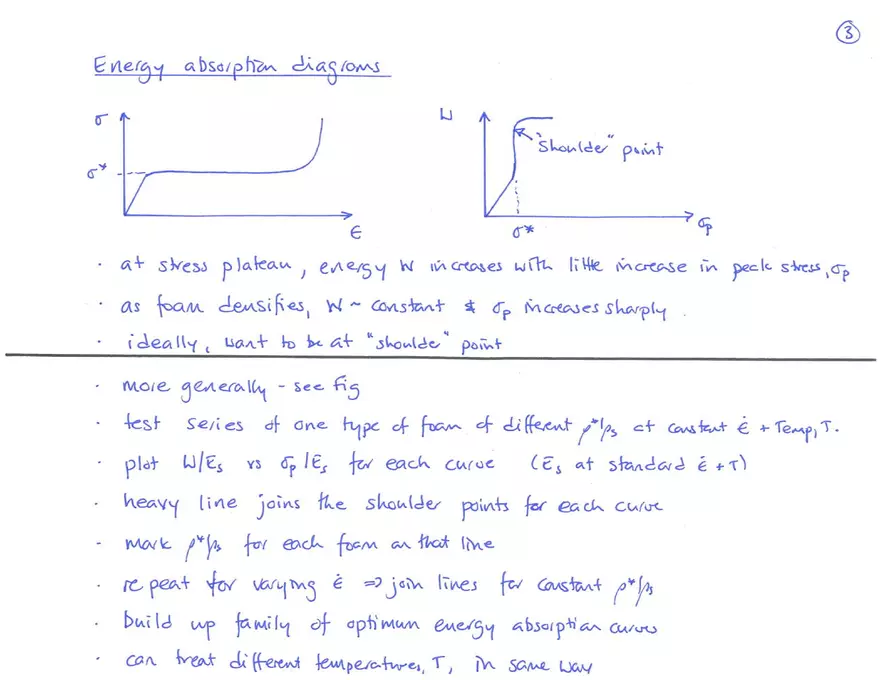 ③
Energy absorption diagrams
σ
σ*
ε
W
"shoulder" point
σ*
σp
· at stress plateau, energy W increases with little increase in peak stress, σp
· as foam densifies, W ~ constant & σp increases sharply.
· ideally, want to be at "shoulder" point
· more generally - see fig
· test series of one type of foam of different ρ*/ρs at constant ε̇ + Temp, T.
· plot W/Es vs σp/Es for each curve (Es at standard ε̇ + T)
· heavy line joins the shoulder points for each curve
- mark ρ*/ρs for each foam on that line
· repeat for varying ε̇ ⇒ join lines for constant ρ*/ρs
· build up family of optimum energy absorption curves
· can treat different temperatures, T, in same way